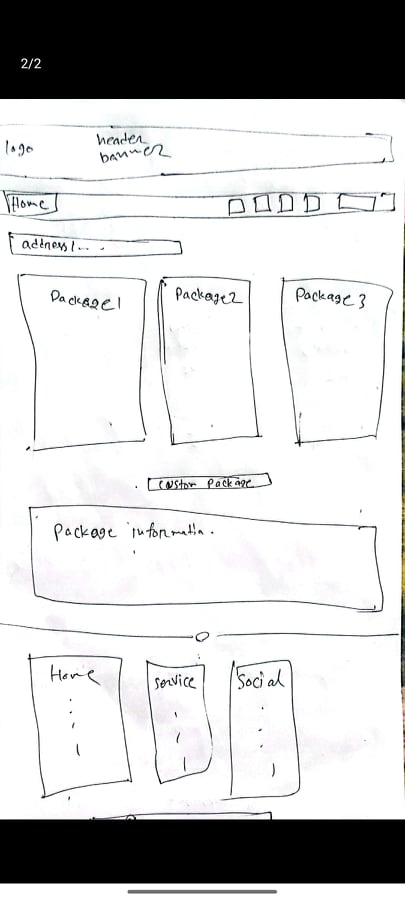 2/2
logo
header
banner
Home
address/....
Package1
Package2
Package 3
Custom Package
Package informatin.
Home
Service
Social